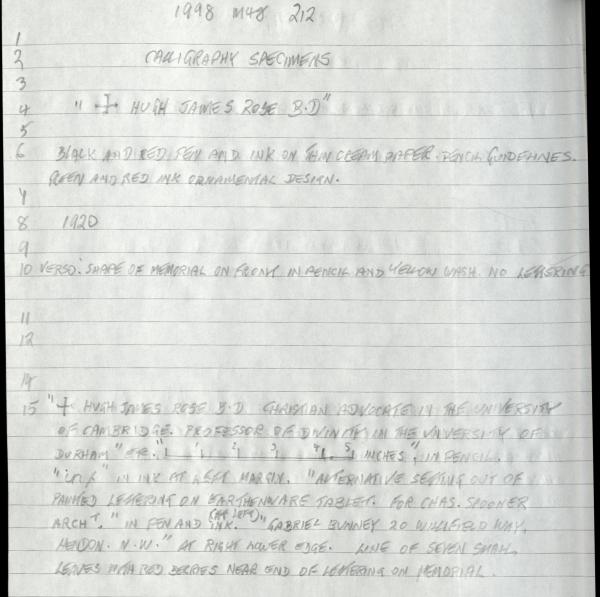 1998 M48 212
1
2 CALLIGRAPHY SPECIMENS
3
4 " ✝ HUGH JAMES ROSE B.D"
5
6 BLACK AND RED PEN AND INK ON THIN CREAM PAPER. PENCIL GUIDELINES.
GREEN AND RED INK ORNAMENTAL DESIGN.
7
8 1920
9
10 VERSO: SHAPE OF MEMORIAL ON FRONT IN PENCIL AND YELLOW WASH. NO LETTERING
11
12
14
15 "✝ HUGH JAMES ROSE B.D. CHRISTIAN ADVOCATE IN THE UNIVERSITY
OF CAMBRIDGE. PROFESSOR OF DIVINITY IN THE UNIVERSITY OF
DURHAM" ETC. 1 2 3 4 5 INCHES", IN PENCIL.
IN INK AT LEFT MARGIN. "ALTERNATIVE SETTING OUT OF
PAINTED LETTERING ON EARTHENWARE TABLET. FOR CHAS. SPOONER
ARCHT." IN PEN AND INK. (AT LEFT) "GABRIEL BUNNEY 20 WILLIFIELD WAY,
HENDON. N.W." AT RIGHT LOWER EDGE. LINE OF SEVEN SMALL
LEAVES WITH RED BERRIES NEAR END OF LETTERING ON MEMORIAL.